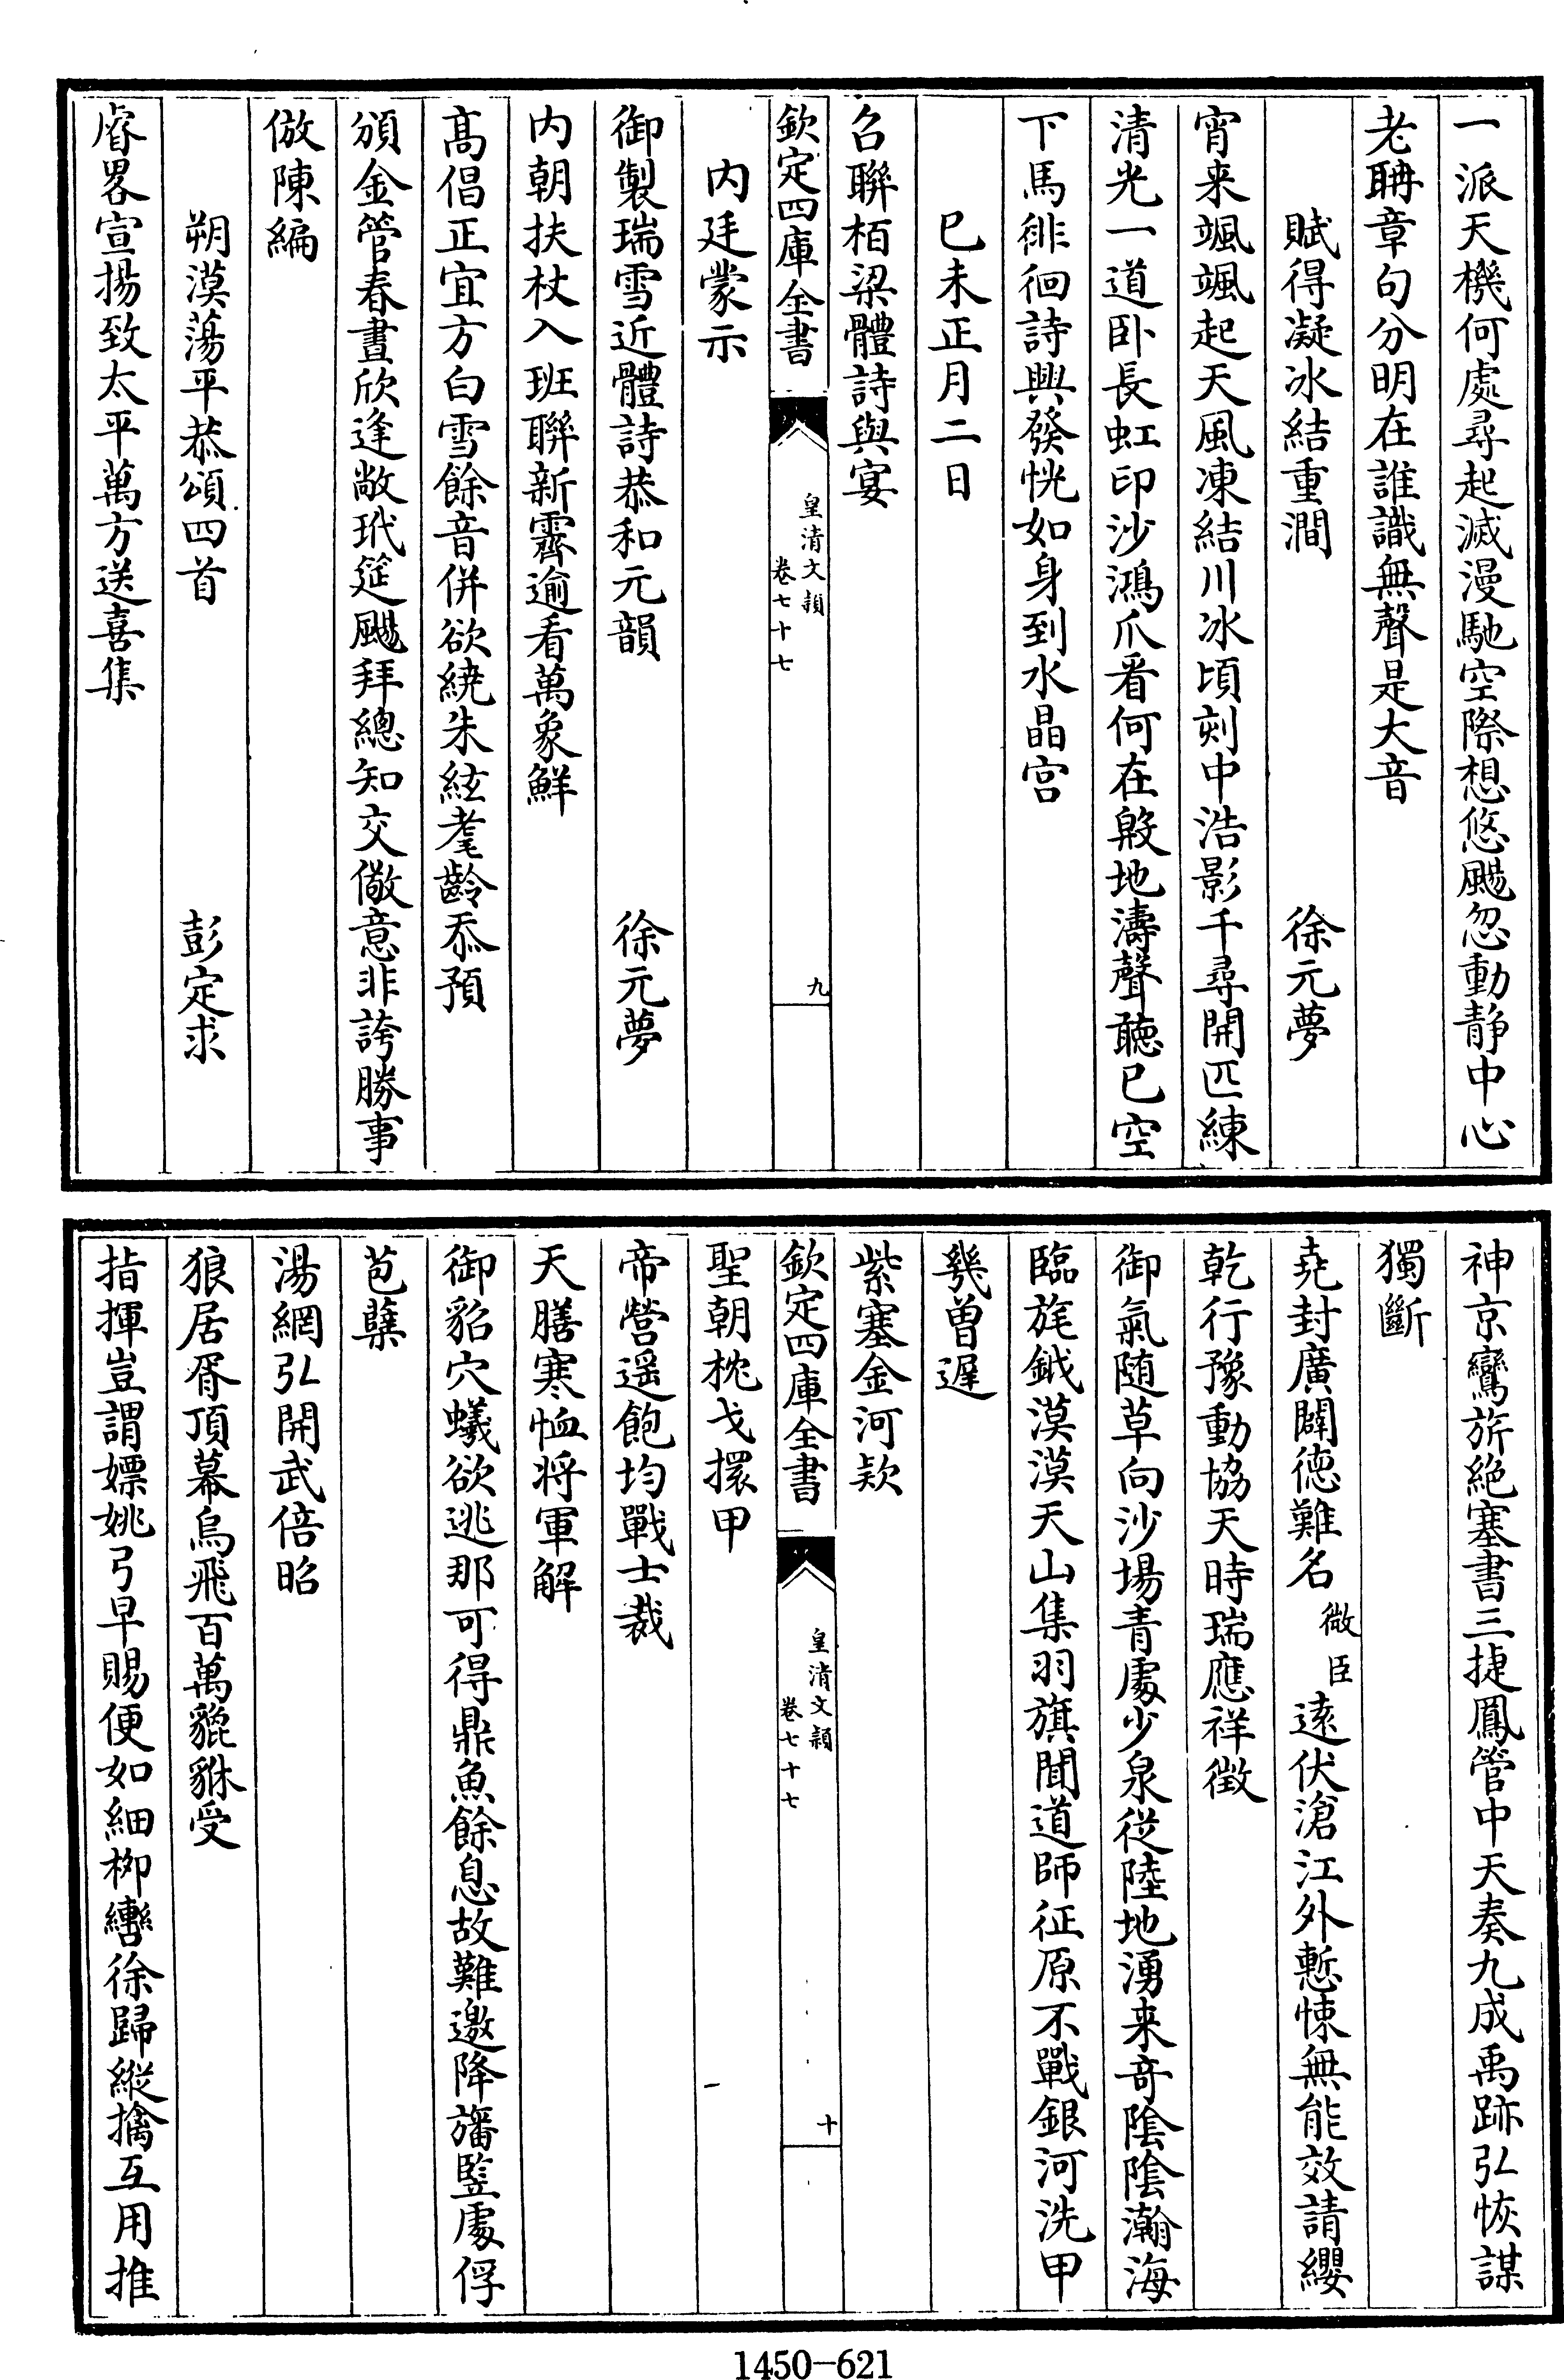 一派天機何處尋起滅漫馳空際想悠颺忽動静中心
老聃章句分明在誰識無聲是大音
賦得凝冰結重澗　徐元夢
宵来颯颯起天風凍結川冰頃刻中浩影千尋開匹練
清光一道卧長虹印沙鴻爪看何在殷地濤聲聽已空
下馬徘徊詩興發恍如身到水晶宫
已未正月二日
召聯栢梁體詩與宴
欽定四庫全書　皇清文穎　卷七十七　九
内廷蒙示
御製瑞雪近體詩恭和元韻　徐元夢
内朝扶杖入班聯新霽逾看萬象鮮
髙倡正宜方白雪餘音併欲繞朱絃耄齡忝預
頒金管春晝欣逢敞玳筵颺拜總知交儆意非誇勝事
倣陳編
朔漠蕩平恭頌四首　彭定求
睿畧宣揚致太平萬方送喜集
神京鸞旂絶塞書三捷鳳管中天奏九成禹跡弘恢謀
獨斷
堯封廣闢德難名微臣遠伏滄江外慙悚無能效請纓
乾行豫動協天時瑞應祥徴
御氣随草向沙塲青處少泉從陸地湧来奇陰陰瀚海
臨旄鉞漠漠天山集羽旗聞道師征原不戰銀河洗甲
幾曽遲
紫塞金河欵
欽定四庫全書　皇清文穎　卷七十七　十
聖朝枕戈擐甲
帝營遥飽均戰士裁
天膳寒恤将軍解
御貂穴蟻欲逃那可得鼎魚餘息故難邀降旛豎處俘
苞蘖
湯網弘開武倍昭
狼居胥頂幕烏飛百萬貔貅受
指揮豈謂嫖姚弓早賜便如細栁轡徐歸縱擒互用推
1450-621